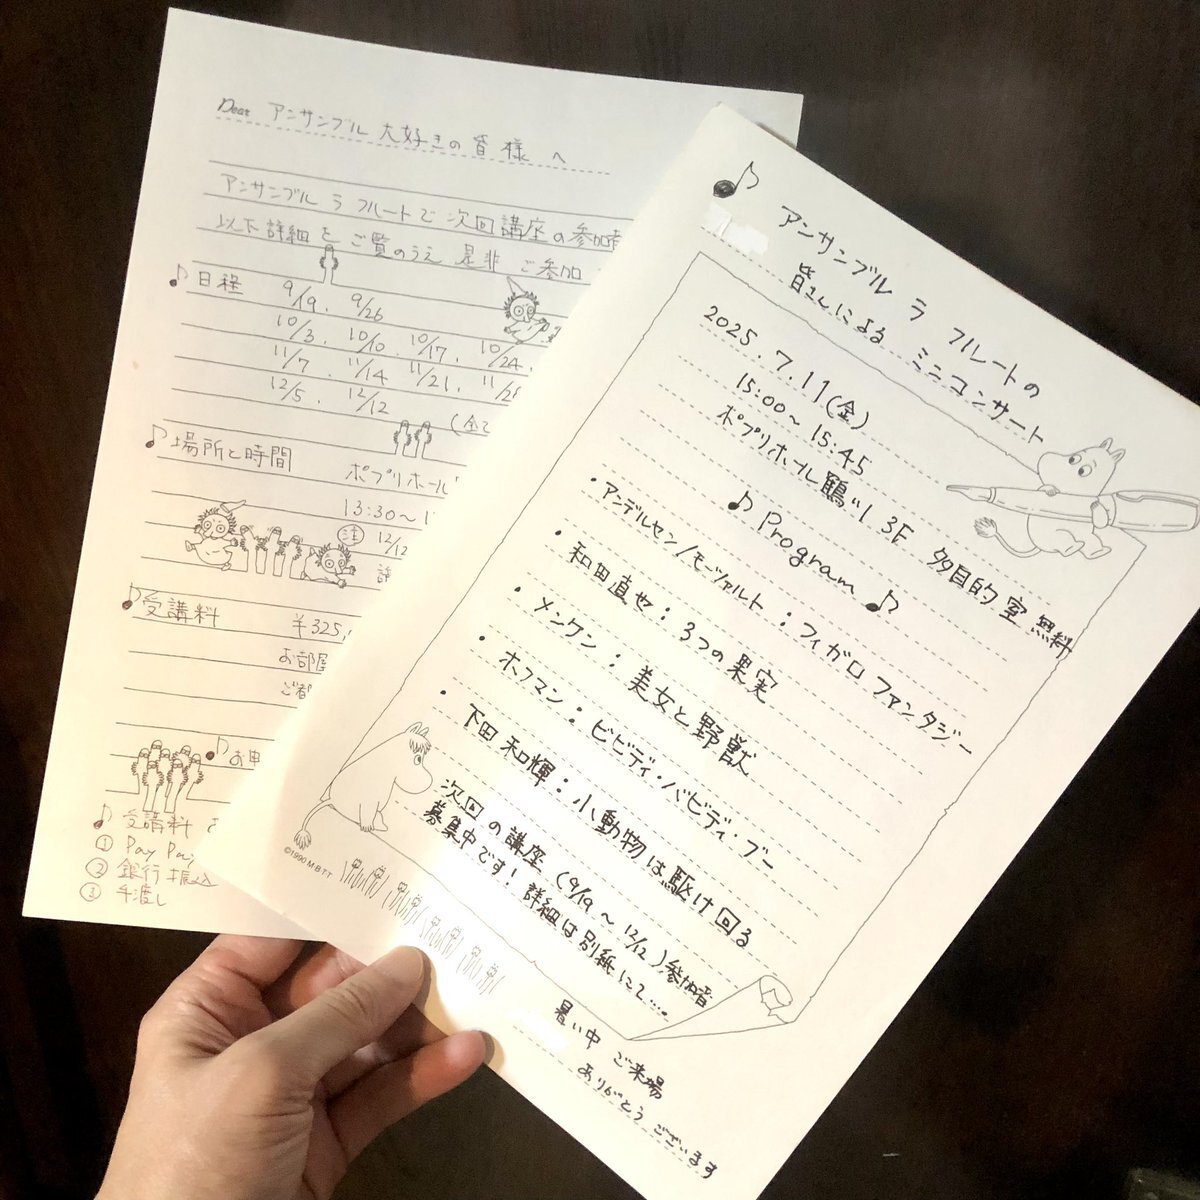 Dear アンサンブル 大好きの皆様へ
アンサンブル ラ フルートで次回講座の参加者
以下詳細をご覧のうえ 是非 ご参加
♪日程 9/19. 9/26
10/3. 10/10. 10/17. 10/24.
11/7. 11/14 11/21. 11/28
12/5. 12/12
♪場所と時間 ポプリホール
13:30～
注 12/12
♪受講料 ¥325,
お部屋
ご都
♪お申
♪受講料
① PayPay
② 銀行振込
③ 手渡し
♪
アンサンブル ラ フルートの
皆さんによる ミニコンサート
2025.7.11(金)
15:00～15:45
ポプリホール鶴川 3F 多目的室 無料
♪ Program ♪
・アンデルセン/モーツァルト：フィガロ ファンタジー
・和田直也：3つの果実
・メンケン：美女と野獣
・ホフマン：ビビディ・バビディ・ブー
・下田和輝：小動物は駆け回る
次回の講座（9/19～12/12)参加者
募集中です！詳細は別紙にて....
©1990 M・B T T
暑い中 ご来場
ありがとうございます